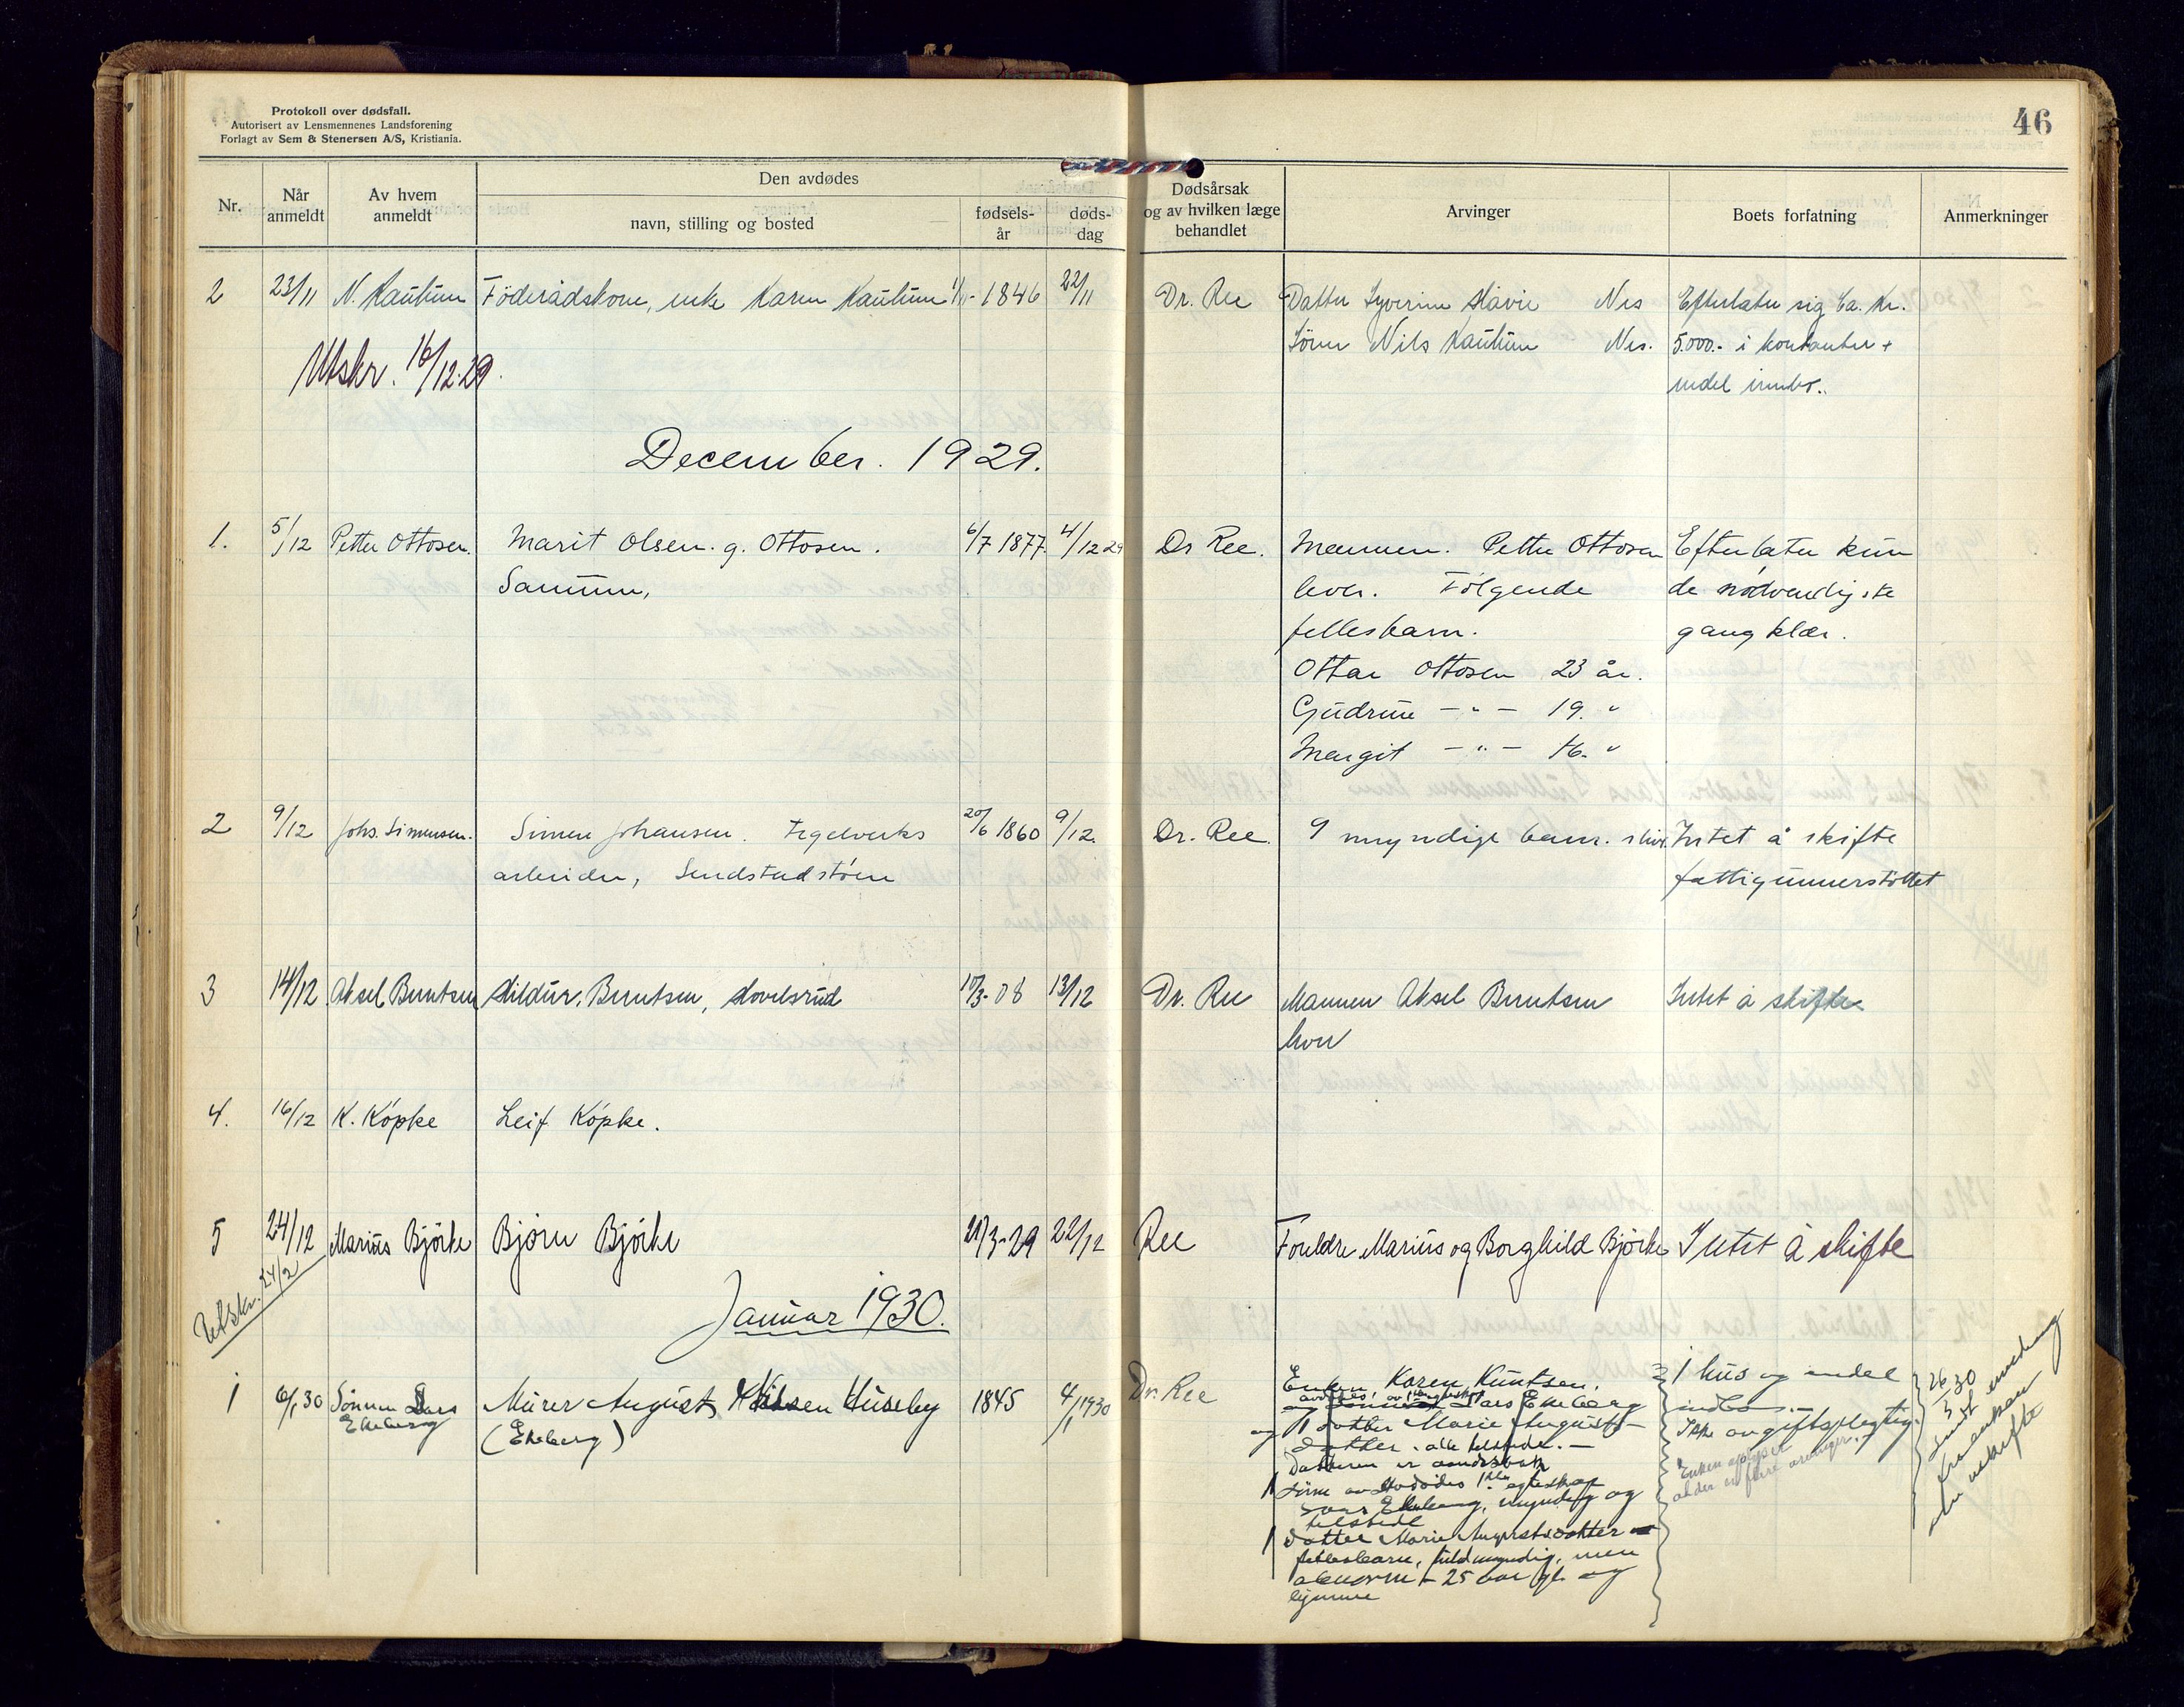 Protokoll over dødsfall.
Autorisert av Lensmennenes Landsforening
Forlagt av Sem & Stenersen A/S, Kristiania.
46
Nr.
Når anmeldt
Av hvem anmeldt
Den avdødes
navn, stilling og bosted
fødsels-år
døds-dag
Dødsårsak og av hvilken læge behandlet
Arvinger
Boets forfatning
Anmerkninger
2 23/11 N. Kaulum Föderådskone, enke Karen Kaulum - 1846 22/11 Dr. Ree Datter Syverine Nes Efterlater sig ca. kr.
Sönn Nils Kaulum Nes. 5.000.- i kontanter +
endel innbo.
Utskr. 16/12.29.
December. 1929.
1. 5/12 Petter Ottosen. Marit Olsen. g. Ottosen. 6/7 1877. 4/12 29 Dr Ree. Mannen. Petter Ottosen Efterlater kun
lever. Følgende de nødvendigste
fellesbarn. gangklær.
Ottar Ottosen 23 år.
Gudrun — " — 19. "
Margit — " — 16. "
2 9/12 Johs. Simensen. Simen Johansen. Tegelverks 20/6 1860 9/12. Dr. Ree. 9 myndige barn. Intet å skifte
arbeider, fattigunnerstöttet
3 14/12 Aksel Berntsen Hildur Berntsen, Hovelsrud 10/3- 08 13/12 Dr. Ree Mannen Aksel Berntsen Intet å skifte
lever
4. 16/12 K. Köpke Leif Köpke.
5 24/12 Marius Björke Björn Björke 21/3-29 22/12 Ree Foreldre Marius og Borghild Björke Intet å skifte
Utskr. 24/2
Januar 1930.
1 6/1 30 Sønnen Lars Murer August Huseby 1845 4/1 1930 Dr. Ree Enken Karen Knutsen. 1 hus og endel
Ekeberg (Ekeberg)
Lars Ekeberg indbo.-
og 1 datter Marie Augusts- Ikke avgiftspligtig.
datter. alle tilstede.-
Datteren er aandssvak
1 sönn av avdødes 1ste egteskap
Lars Ekeberg, myndig og
tilstede
1 Datter Marie Augustsdatter
fellesbarn, fuldmyndig, men
abnorm - 25 aar gl. og
hjemme
Enken oplyser
at der er flere arvinger.
26/3 30
Sendt
uskifte